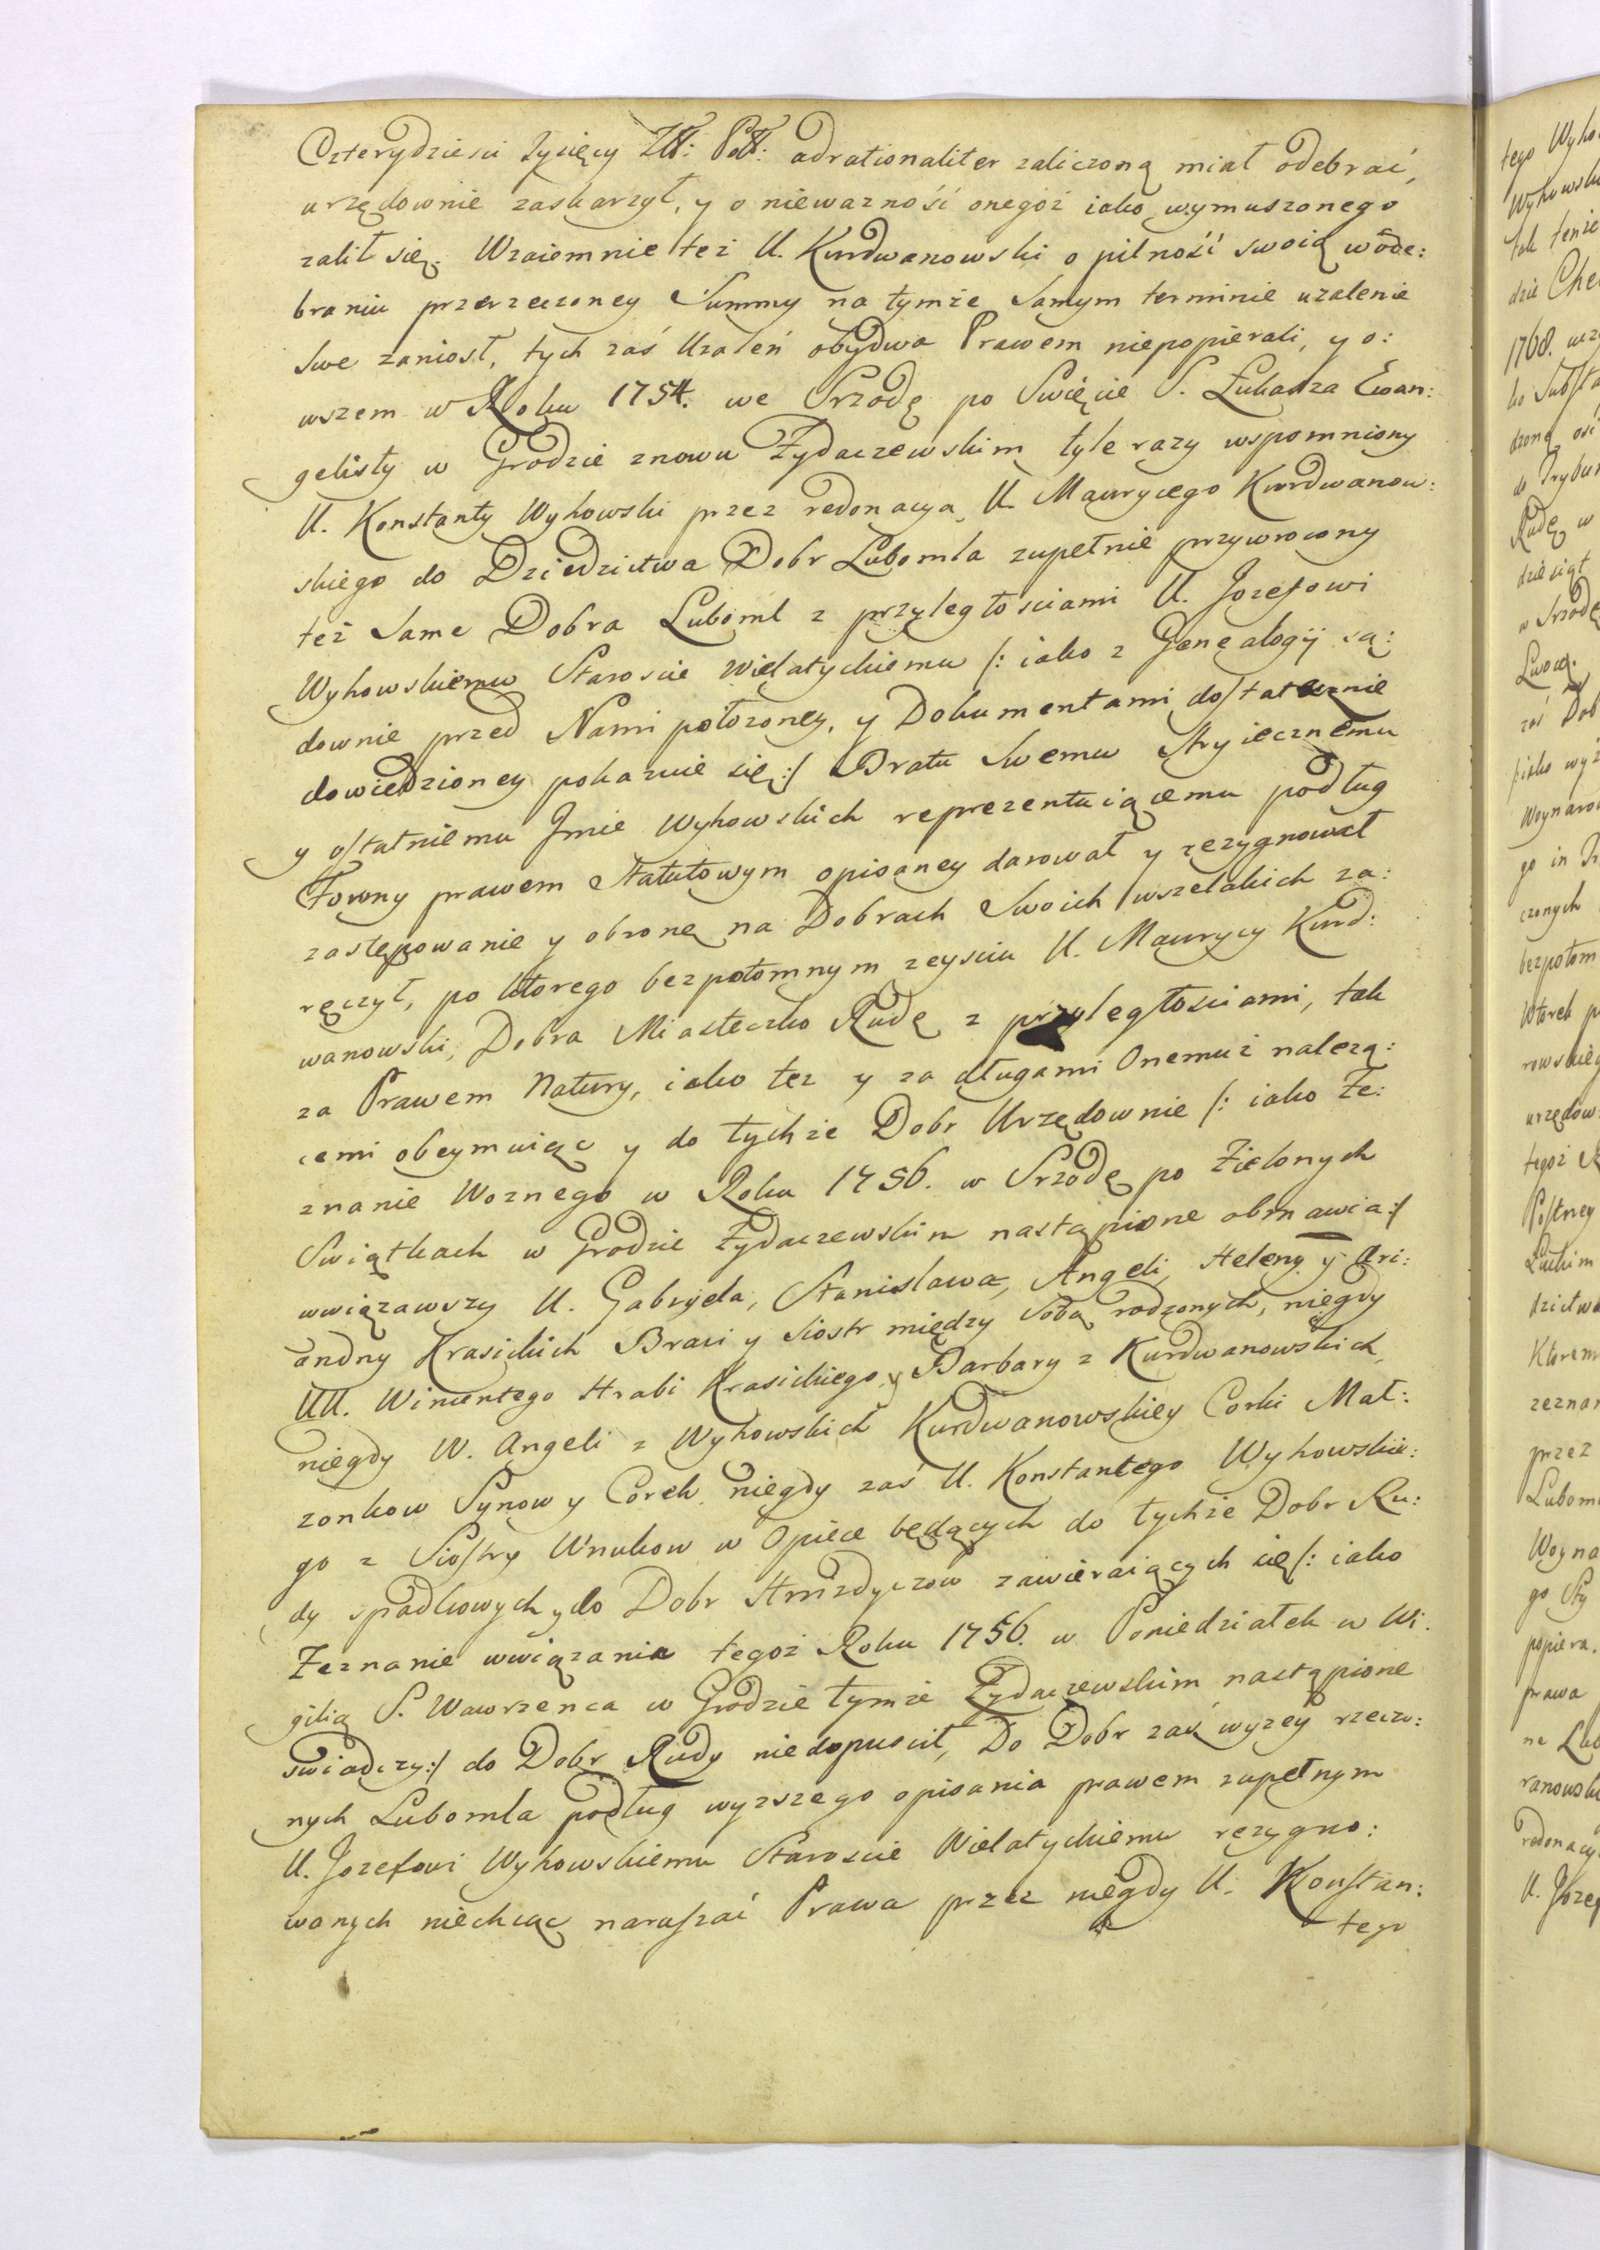 Czterydziesci Tysięcy Złł: Poll: adrationaliter zaliczoną miał odebrać,
urzędownie zaskarzył, y o niewazność onegóż iako wymuszonego
zalił się. Wzaiemnie też U. Kurdwanowski o pilność swoią w óde:
braniu przerzeczoney Summy na tymże Samym terminie uzalenie
Swe zaniosł, tych zaś Uzaleń obydwa Prawem niepopierali, y o:
wszem w Roku 1754. we Srzodę po Swięcie S. Łukasza Ewan:
gelisty w Grodzie znowu Żydaczewskim tyle razy wspomniony
U. Konstanty Wyhowski przez redonacya U. Maurycego Kurdwanow:
skiego do Dziedzictwa Dobr Lubomla zupełnie przywrocony
też Same Dobra Luboml z przyległościami U. Jozefowi
Wyhowskiemu Staroscie Wielatyckiemu /: iako z Genealogij są:
downie przed Nami położoney, y Dokumentami dostatecznie
dowiedzioney pokazuie się :/ Bratu Swemu Stryiecznemu
y ostatniemu Jmie Wyhowskich reprezentuiącemu podług
Formy prawem Statutowym opisaney darował y rezygnował
zastępowanie y obronę na Dobrach Swoich wszelakich za:
ręczył, po ktorego bezpotomnym zeysciu U. Maurycy Kurd:
wanowski, Dobra Miasteczko Rudę z przyległosciami, tak
za Prawem Natury, iako tez y za długami Onemuż nalezą:
cemi obeymuiąc y do tychże Dobr Urzędownie /: iako Ze:
znanie Woznego w Roku 1756. w Srzodę po Zielonych
Swiątkach w Grodzie Żydaczewskim nastąpione obmawia :/
wwiązawszy U. Gabryela, Stanisława, Angeli, Heleny y Ari:
andny Krasickich Braci y Siostr między Sobą rodzonych, niegdy
UU. Wincentego Hrabi Krasickiego y Barbary z Kurdwanowskich,
niegdy W. Angeli z Wyhowskich Kurdwanowskiey Corki Mał:
zonkow Synow y Corek, niegdy zaś U. Konstantego Wyhowskie:
go z Siostry Wnukow w Opiece będących do tychże Dobr Ru:
dy spadkowych, y do Dobr Hnizdyczow zawieraiących się /: iako
Zeznanie wwiązania tegoż Roku 1756. w Poniedziałek w Wi:
gilią S. Wawrzenca w Grodzie tymże Żydaczewskim nastąpione
swiadczy :/ do Dobr Rudy niedopuscił, Do Dobr zaś wyzey rzeczo:
nych Lubomla podług wyzszego opisania prawem zupełnym
U. Jozefowi Wyhowskiemu Staroscie Wielatyckiemu rezygno:
wanych niechcąc naruszać Prawa przez niegdy U. Konstan:
tego